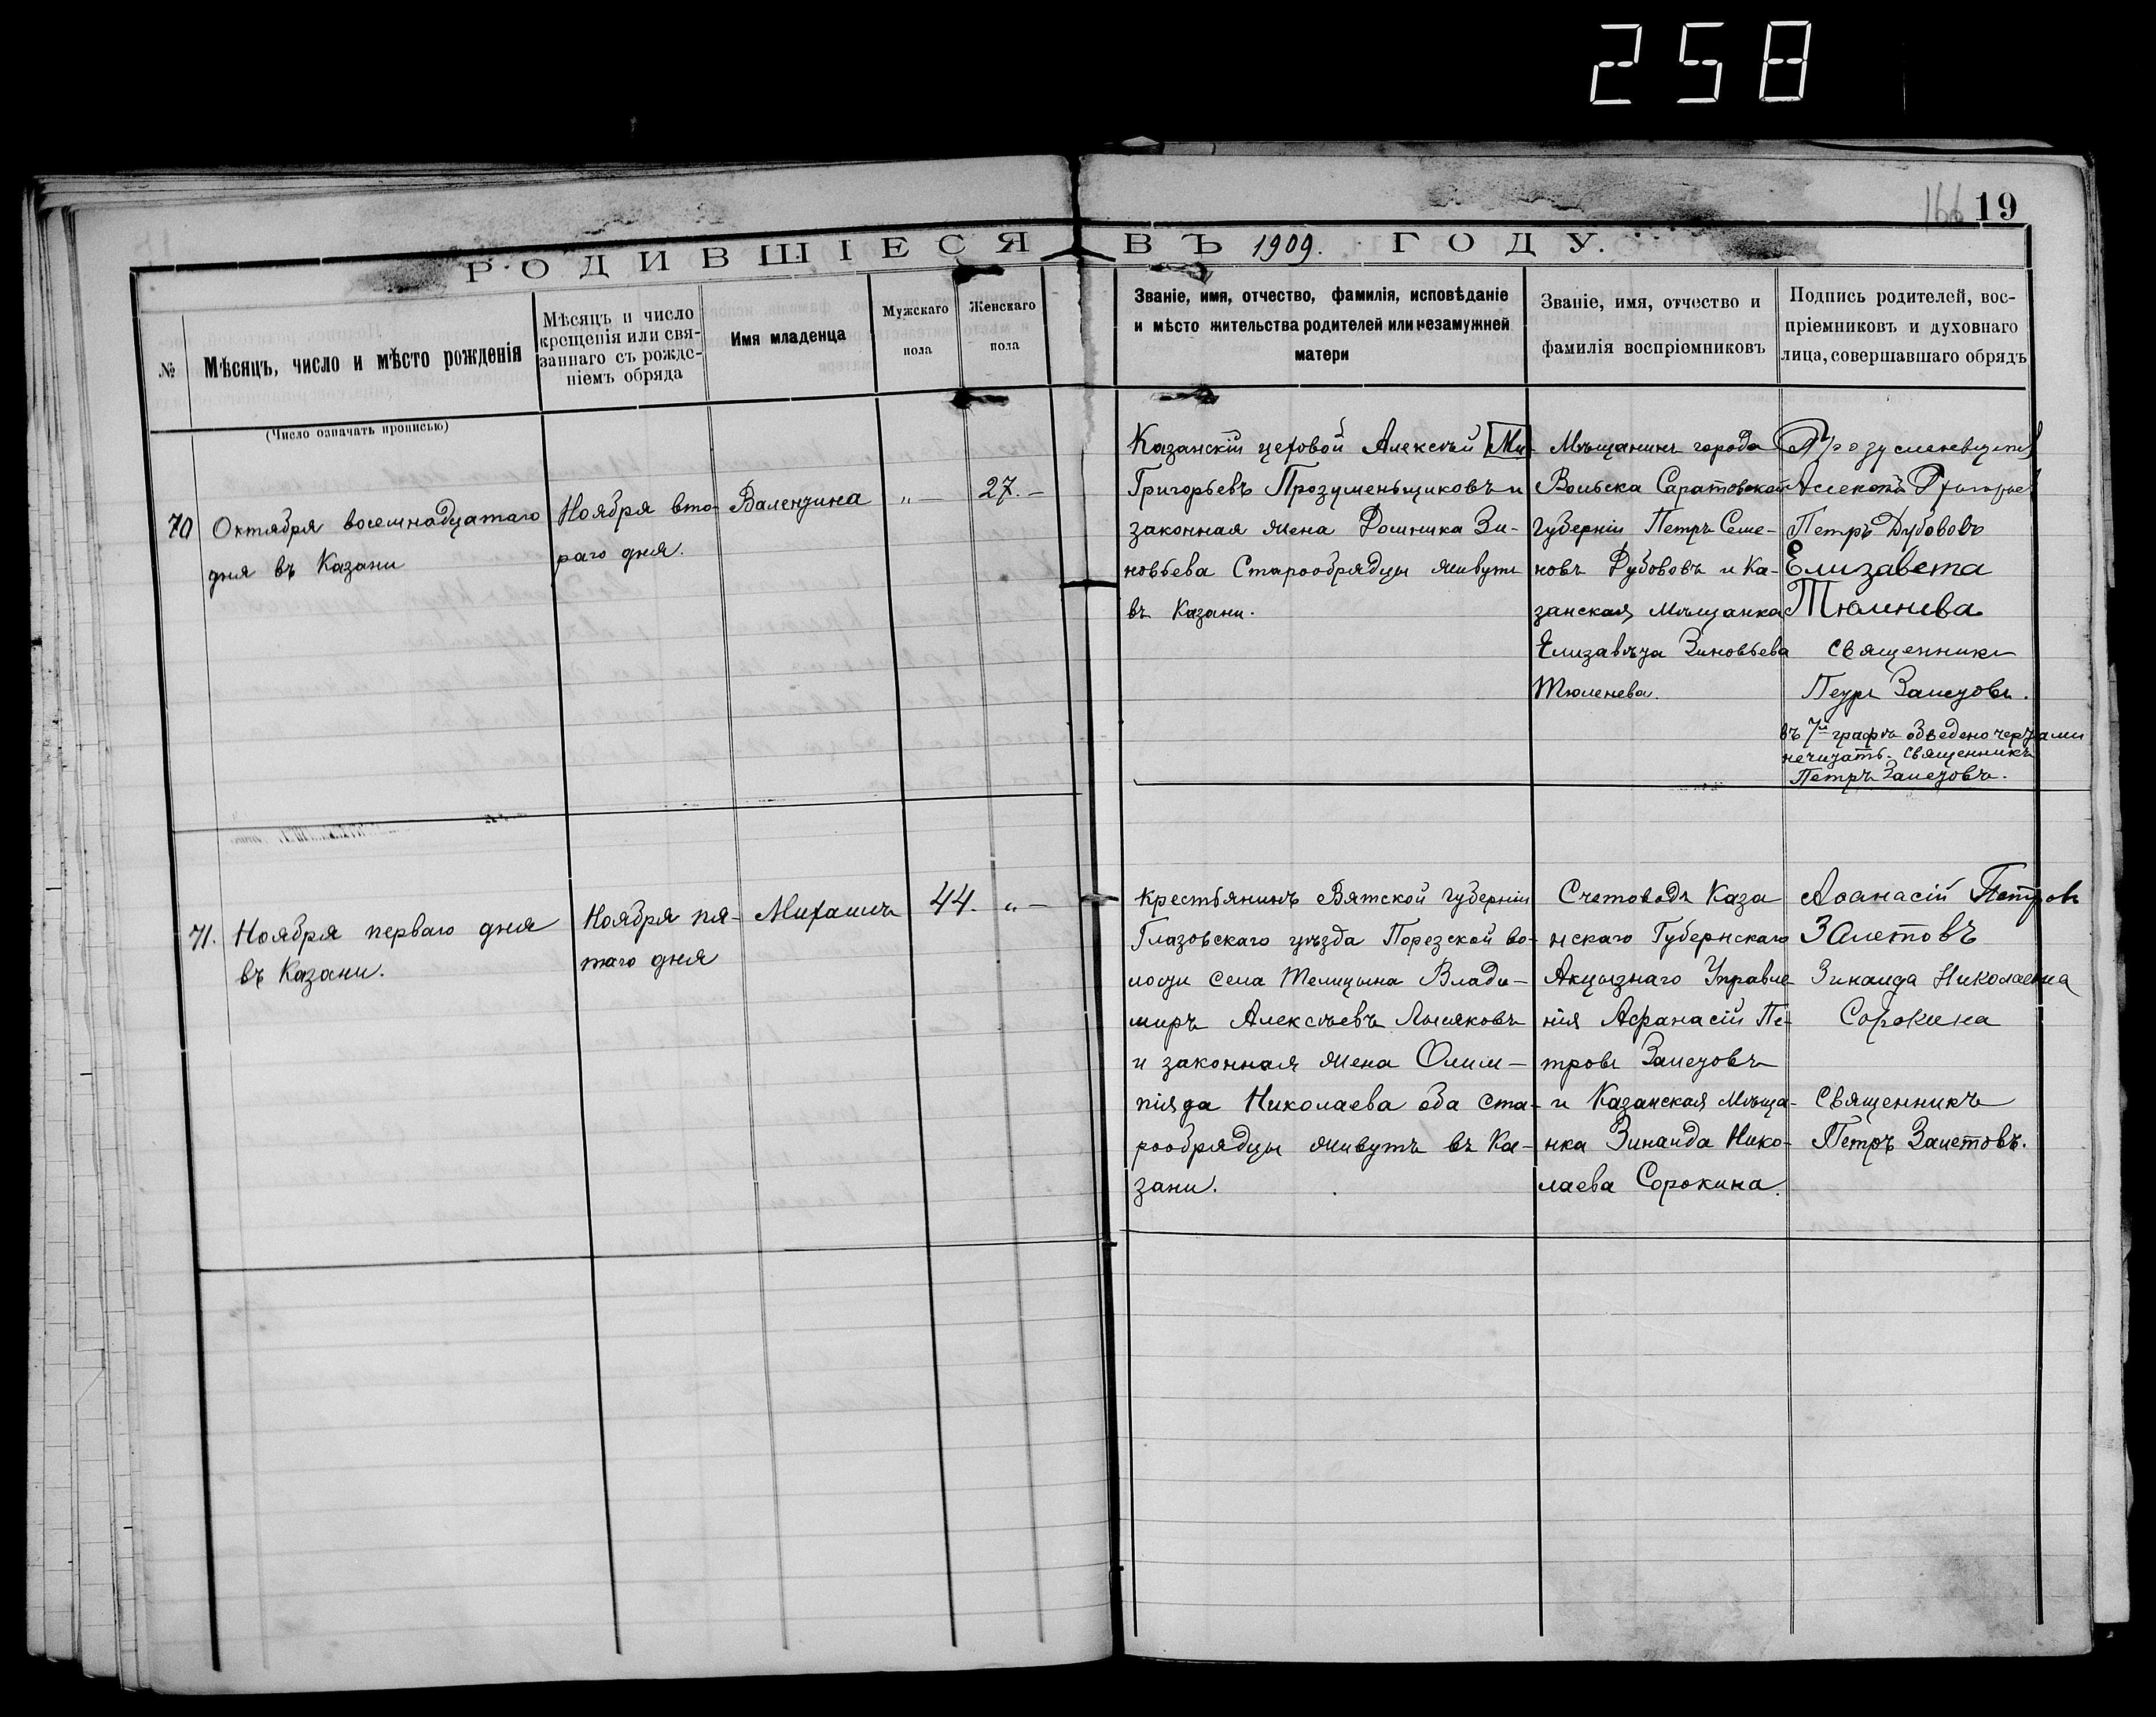 258
166 19
РОДИВШІЕСЯ ВЪ 1909. ГОДУ.
№
Мѣсяцъ, число и мѣсто рожденія
(Число означать прописью)
Мѣсяцъ и число
крещенія или свя-
заннаго съ рожде-
ніемъ обряда
Имя младенца
Мужскаго
пола
Женскаго
пола
Званіе, имя, отчество, фамилія, исповѣданіе
и мѣсто жительства родителей или незамужней
матери
Званіе, имя, отчество и
фамилія воспріемниковъ
Подпись родителей, вос-
пріемниковъ и духовнаго
лица, совершавшаго обрядъ
70
Октября восемнадцатаго
дня въ Казани
Ноября вто-
раго дня.
Валентина
„ —
27. —
Казанскій цеховой Алексѣй Ми-
Григорьевъ Прозуменьщиковъ и
законная жена Домника Зи-
новьева Старообрядцы живутъ
въ Казани.
Мѣщанинъ города
Вольска Саратовской
губерніи Петръ Семе-
новъ Дубововъ и Ка-
занская мѣщанка
Елизавѣта Зиновьева
Тюленева.
Алексѣй
Петръ Дубововъ
Елизавета
Тюлнева
священникъ
Петръ Залетовъ.
въ 7й графѣ обведено чертами
нечитать. священникъ
Петръ Залетовъ.
71.
Ноября перваго дня
въ Казани.
Ноября пя-
таго дня
Михаилъ
44.
„ —
крестьянинъ Вятской губерніи
Глазовскаго уѣзда Порезской во-
лости села Телицына Влади-
миръ Алексѣевъ Лысяковъ
и законная жена Олим-
піяда Николаева оба ста-
рообрядцы живутъ въ Ка-
зани.
Счетоводъ Каза
нскаго Губернскаго
Акцызнаго Управле-
нія Афанасій Пе-
тровъ Залетовъ
и Казанская мѣща-
нка Зинаида Нико-
лаева Сорокина.
Аѳанасій Петровъ
Залетовъ
Зинаида Николаевна
Сорокина
Священникъ
Петръ Залетовъ.